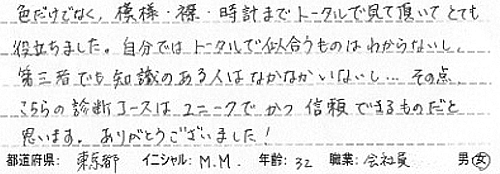 色だけでなく、模様・襟・時計までトータルで見て頂いてとても
役立ちました。自分ではトータルで似合うものはわからないし、
第三者でも知識のある人はなかなかいないし… その点、
こちらの診断コースはユニークでかつ信頼できるものだと
思います。ありがとうございました！
都道府県： 東京都 イニシャル： M.M. 年齢： 32 職業： 会社員 男・女